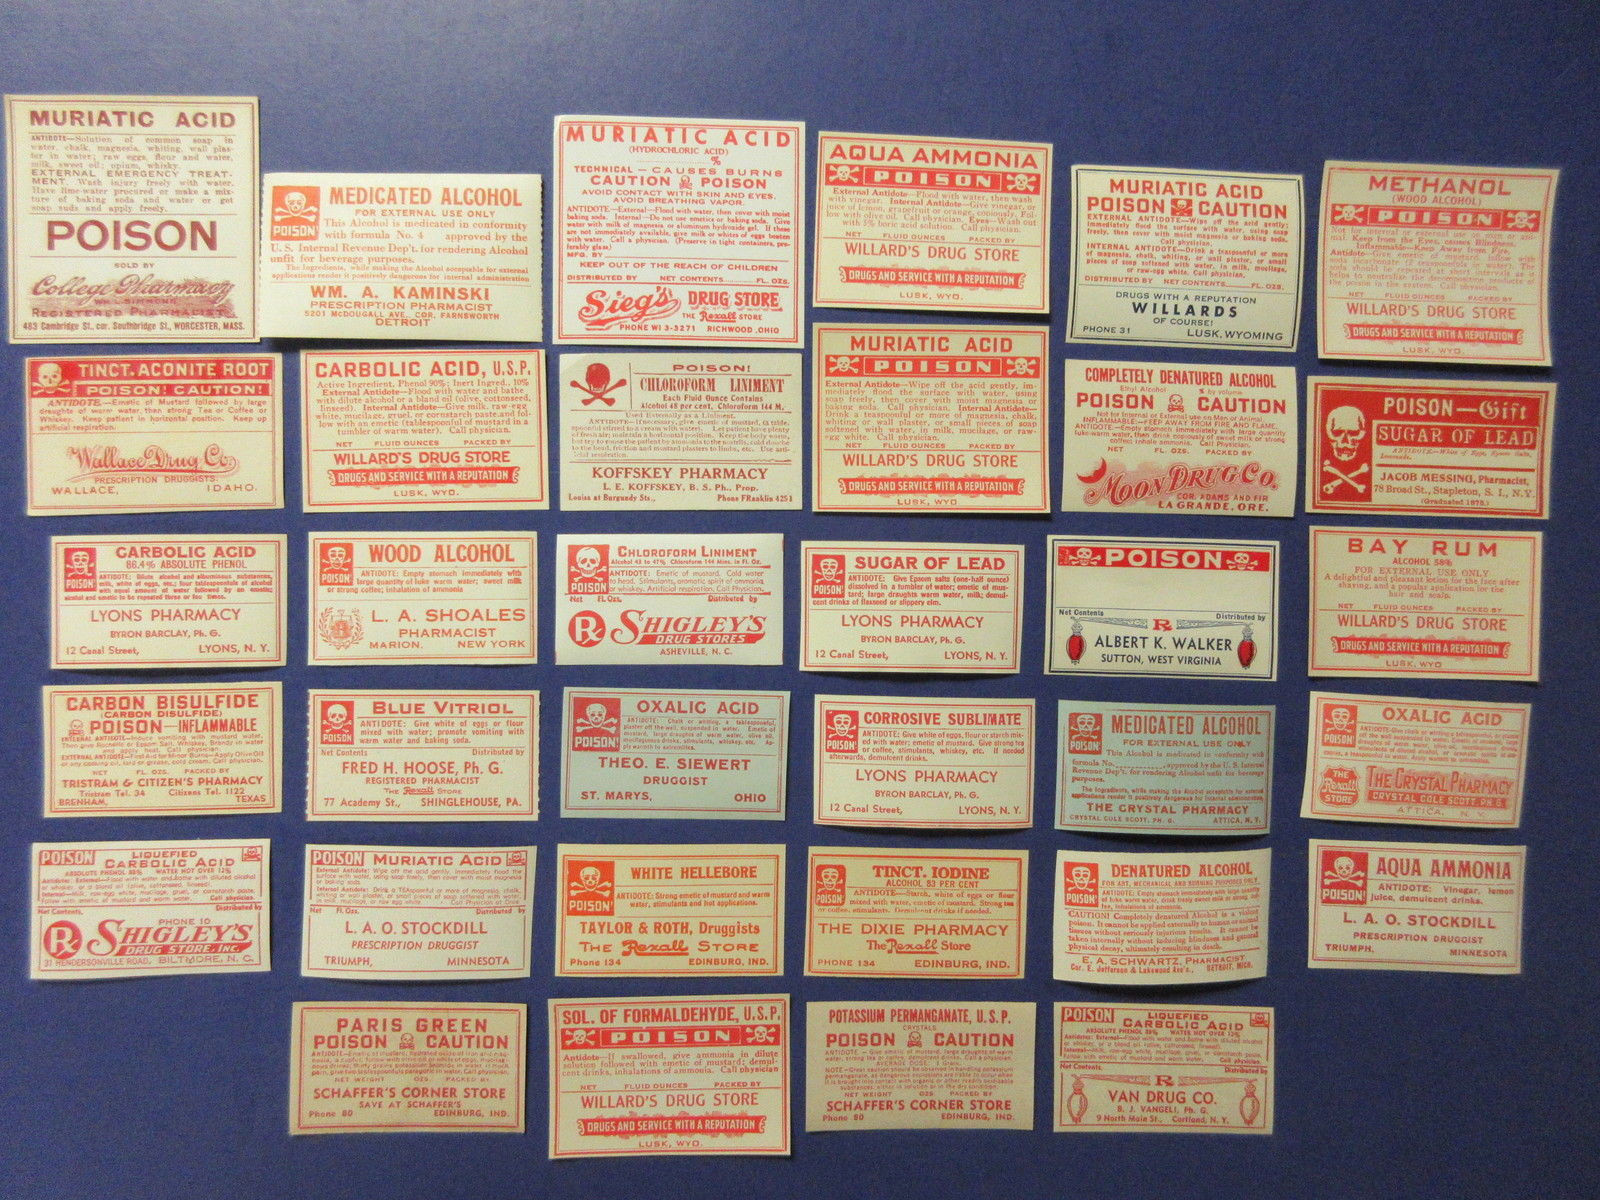 MURIATIC ACID
ANTIDOTE—Solution of common soap in
water, chalk, magnesia, whiting, wall plas-
ter in water; raw eggs, flour and water,
milk, sweet oil; opium, whisky.
EXTERNAL EMERGENCY TREAT-
MENT. Wash injury freely with water.
Have lime-water procured or make a mix-
ture of baking soda and water or get
soap suds and apply freely.
POISON
SOLD BY
College Pharmacy
WM. L. SIMMONS
REGISTERED PHARMACIST
483 Cambridge St., cor. Southbridge St., WORCESTER, MASS.
POISON
MEDICATED ALCOHOL
FOR EXTERNAL USE ONLY
This Alcohol is medicated in conformity
with formula No. 4 approved by the
U. S. Internal Revenue Dep't. for rendering Alcohol
unfit for beverage purposes.
The Ingredients, while making the Alcohol acceptable for external
applications render it positively dangerous for internal administration
WM. A. KAMINSKI
PRESCRIPTION PHARMACIST
5201 McDOUGALL AVE., COR. FARNSWORTH
DETROIT
MURIATIC ACID
(HYDROCHLORIC ACID)
%
TECHNICAL — CAUSES BURNS
CAUTION POISON
AVOID CONTACT WITH SKIN AND EYES.
AVOID BREATHING VAPOR.
ANTIDOTE—External—Flood with water, then cover with moist
baking soda. Internal—Do not use emetics or baking soda. Give
water with milk of magnesia or aluminum hydroxide gel. If these
are not immediately available, give milk or whites of eggs beaten
with water. Call a physician. (Preserve in tight containers, pre-
ferably glass)
MFG. BY
KEEP OUT OF THE REACH OF CHILDREN
DISTRIBUTED BY NET CONTENTS FL. OZS.
Sieg's DRUG STORE
THE Rexall STORE
PHONE WI 3-3271 RICHWOOD, OHIO
AQUA AMMONIA
POISON
External Antidote—Flood with water, then wash
with vinegar. Internal Antidote—Give vinegar, or
juice of lemon, grapefruit or orange, copiously. Fol-
low with olive oil. Call physician. Eyes—Wash out
with 5% boric acid solution. Call physician.
NET FLUID OUNCES PACKED BY
WILLARD'S DRUG STORE
DRUGS AND SERVICE WITH A REPUTATION
LUSK, WYO.
MURIATIC ACID
POISON CAUTION
EXTERNAL ANTIDOTE—Wipe off the acid gently;
immediately flood the surface with water, using soap
freely, then cover with moist magnesia or baking soda.
Call physician.
INTERNAL ANTIDOTE—Drink a teaspoonful or more
of magnesia, chalk, whiting, or wall plaster, or small
pieces of soap softened with water, in milk, mucilage,
or raw-egg white. Call physician.
DISTRIBUTED BY NET CONTENTS FL. OZS.
DRUGS WITH A REPUTATION
WILLARDS
OF COURSE!
PHONE 31 LUSK, WYOMING
METHANOL
(WOOD ALCOHOL)
POISON
Not for internal or external use on man or ani-
mal. Keep from the Eyes, causes Blindness.
Inflammable—Keep Away from Fire.
NET FLUID OUNCES PACKED BY
WILLARD'S DRUG STORE
DRUGS AND SERVICE WITH A REPUTATION
LUSK, WYO.
TINCT. ACONITE ROOT
POISON! CAUTION!
ANTIDOTE.—Emetic of Mustard followed by large
draughts of warm water, then strong Tea or Coffee or
Whiskey. Keep patient in horizontal position. Keep up
artificial respiration.
Wallace Drug Co.
PRESCRIPTION DRUGGISTS
WALLACE, IDAHO.
CARBOLIC ACID, U.S.P.
Active Ingredient, Phenol 90%; Inert Ingred., 10%
External Antidote—Flood with water and bathe
with dilute alcohol or a bland oil (olive, cottonseed,
linseed). Internal Antidote—Give milk, raw-egg
white, mucilage, gruel, or cornstarch paste, and fol-
low with an emetic (tablespoonful of mustard in a
tumbler of warm water). Call physician.
NET FLUID OUNCES PACKED BY
WILLARD'S DRUG STORE
DRUGS AND SERVICE WITH A REPUTATION
LUSK, WYO.
POISON!
CHLOROFORM LINIMENT
Each Fluid Ounce Contains
Alcohol 48 per cent, Chloroform 144 M.
Used Externally as a Liniment.
KOFFSKEY PHARMACY
L. E. KOFFSKEY, B. S. Ph., Prop.
Louisa at Burgundy Sts., Phone FRanklin 4251
MURIATIC ACID
POISON
External Antidote—Wipe off the acid gently, im-
mediately flood the surface with water, using
soap freely, then cover with moist magnesia or
baking soda. Call physician. Internal Antidote—
Drink a teaspoonful or more of magnesia, chalk,
whiting or wall plaster, or small pieces of soap
softened with water, in milk, mucilage, or raw-
egg white. Call physician.
NET FLUID OUNCES PACKED BY
WILLARD'S DRUG STORE
DRUGS AND SERVICE WITH A REPUTATION
LUSK, WYO.
COMPLETELY DENATURED ALCOHOL
Ethyl Alcohol % by volume
POISON CAUTION
Not for Internal or External use on Man or Animal.
INFLAMMABLE—KEEP AWAY FROM FIRE AND FLAME.
NET FL. OZS. PACKED BY
Moon Drug Co.
COR. ADAMS AND FIR
LA GRANDE, ORE.
POISON—Gift
SUGAR OF LEAD
ANTIDOTE.—White of Eggs, Epsom Salts,
Lemonade.
JACOB MESSING, Pharmacist,
78 Broad St., Stapleton, S. I., N.Y.
(Graduated 1878.)
POISON
CARBOLIC ACID
86.4% ABSOLUTE PHENOL
ANTIDOTE: Dilute alcohol and albuminous substances,
milk, white of eggs, etc.; four tablespoonfuls of alcohol
with equal amount of water followed by an emetic;
alcohol and emetic to be repeated three or four times.
LYONS PHARMACY
BYRON BARCLAY, Ph. G.
12 Canal Street, LYONS, N. Y.
POISON
WOOD ALCOHOL
ANTIDOTE: Empty stomach immediately with
large quantity of luke warm water; sweet milk
or strong coffee; inhalation of ammonia
L. A. SHOALES
PHARMACIST
MARION, NEW YORK
POISON
CHLOROFORM LINIMENT
Alcohol 43 to 47% Chloroform 144 Mins. in Fl. Oz.
ANTIDOTE: Emetic of mustard. Cold water
to head. Stimulants, aromatic spirit of ammonia
or whiskey. Artificial respiration. Call Physician.
Net Fl. Ozs. Distributed by
SHIGLEY'S
DRUG STORES
ASHEVILLE, N. C.
POISON!
SUGAR OF LEAD
ANTIDOTE: Give Epsom salts (one-half ounce)
dissolved in a tumbler of water; emetic of mus-
tard; large draughts warm water, milk; demul-
cent drinks of flaxseed or slippery elm.
LYONS PHARMACY
BYRON BARCLAY, Ph. G.
12 Canal Street, LYONS, N. Y.
POISON
Net Contents Distributed by
ALBERT K. WALKER
SUTTON, WEST VIRGINIA
BAY RUM
ALCOHOL 58%
FOR EXTERNAL USE ONLY
A delightful and pleasant lotion for the face after
shaving, and a popular application for the
hair and scalp.
NET FLUID OUNCES PACKED BY
WILLARD'S DRUG STORE
DRUGS AND SERVICE WITH A REPUTATION
LUSK, WYO
CARBON BISULFIDE
(CARBON DISULFIDE)
POISON—INFLAMMABLE
INTERNAL ANTIDOTE—Induce vomiting with mustard water.
Then give Rochelle or Epsom Salt, Whiskey, Brandy in water
and apply heat. Call physician.
EXTERNAL ANTIDOTE—First Aid for Minor Burns: Apply Olive Oil
or any cooking oil, lard or grease, cold cream. Call physician.
NET FL. OZS. PACKED BY
TRISTRAM & CITIZEN'S PHARMACY
Tristram Tel. 34 Citizens Tel. 1122
BRENHAM, TEXAS
POISON!
BLUE VITRIOL
ANTIDOTE: Give white of eggs or flour
mixed with water; promote vomiting with
warm water and baking soda.
Net Contents Distributed by
FRED H. HOOSE, Ph. G.
REGISTERED PHARMACIST
THE Rexall STORE
77 Academy St., SHINGLEHOUSE, PA.
POISON!
OXALIC ACID
ANTIDOTE: Chalk or whiting, a tablespoonful,
THEO. E. SIEWERT
DRUGGIST
ST. MARYS, OHIO
POISON!
CORROSIVE SUBLIMATE
ANTIDOTE: Give white of eggs, flour or starch mix-
ed with water; emetic of mustard. Give strong tea
or coffee, stimulants, whiskey, if needed
afterwards, demulcent drinks.
LYONS PHARMACY
BYRON BARCLAY, Ph. G.
12 Canal Street, LYONS, N. Y.
POISON!
MEDICATED ALCOHOL
FOR EXTERNAL USE ONLY
This Alcohol is medicated in conformity with
formula No. approved by the U. S. Internal
Revenue Dep't. for rendering Alcohol unfit for beverage
purposes.
The Ingredients, while making the Alcohol acceptable for external
applications render it positively dangerous for internal administration.
THE CRYSTAL PHARMACY
CRYSTAL COLE SCOTT, PH. G. ATTICA, N. Y.
POISON!
OXALIC ACID
THE Rexall STORE
THE CRYSTAL PHARMACY
CRYSTAL COLE SCOTT, PH. G.
ATTICA, N. Y.
POISON
LIQUEFIED
CARBOLIC ACID
ABSOLUTE PHENOL 88% WATER NOT OVER 12%
Antidotes: External—Flood with water and bathe with diluted alcohol
or whiskey, or a bland oil (olive, cottonseed, linseed).
Internal—Milk, raw-egg white, mucilage, gruel, or cornstarch paste.
Follow with emetic of mustard and warm water. Call physician.
Net Contents, Distributed by
PHONE 10
SHIGLEY'S
DRUG STORE, INC.
31 HENDERSONVILLE ROAD, BILTMORE, N. C.
POISON
MURIATIC ACID
Antidote: External: Wipe off the acid gently, immediately flood the
surface with water, using soap freely, then cover with moist magnesia
or baking soda.
Net Fl. Ozs. Distributed by
L. A. O. STOCKDILL
PRESCRIPTION DRUGGIST
TRIUMPH, MINNESOTA
POISON!
WHITE HELLEBORE
ANTIDOTE: Strong emetic of mustard and warm
water, stimulants and hot applications.
TAYLOR & ROTH, Druggists
THE Rexall STORE
Phone 134 EDINBURG, IND.
POISON!
TINCT. IODINE
ALCOHOL 83 PER CENT
ANTIDOTE—Starch, white of eggs or flour
mixed with water, emetic of mustard. Strong tea
or coffee, stimulants. Demulcent drinks if needed.
THE DIXIE PHARMACY
The Rexall Store
PHONE 134 EDINBURG, IND.
POISON!
DENATURED ALCOHOL
FOR ART, MECHANICAL AND BURNING PURPOSES ONLY.
ANTIDOTE: Empty stomach immediately with large quantity
of luke warm water, drink freely sweet milk or strong cof-
fee, inhalations of ammonia.
CAUTION! Completely denatured Alcohol is a violent
poison. It cannot be applied externally to human or animal
tissues without seriously injurious results. It cannot be
taken internally without inducing blindness and general
physical decay, ultimately resulting in death.
E. A. SCHWARTZ, PHARMACIST
Cor. E. Jefferson & Lakewood Ave's., DETROIT, MICH.
POISON!
AQUA AMMONIA
ANTIDOTE: Vinegar, lemon
juice, demulcent drinks.
L. A. O. STOCKDILL
PRESCRIPTION DRUGGIST
TRIUMPH, MINNESOTA
PARIS GREEN
POISON CAUTION
NET WEIGHT OZS. PACKED BY
SCHAFFER'S CORNER STORE
SAVE AT SCHAFFER'S
Phone 80 EDINBURG, IND.
SOL. OF FORMALDEHYDE, U.S.P.
POISON
Antidote—If swallowed, give ammonia in dilute
solution followed with emetic of mustard; demul-
cent drinks, inhalations of ammonia. Call physician
NET FLUID OUNCES PACKED BY
WILLARD'S DRUG STORE
DRUGS AND SERVICE WITH A REPUTATION
LUSK, WYO.
POTASSIUM PERMANGANATE, U. S. P.
CRYSTALS
POISON CAUTION
NET WEIGHT OZS PACKED BY
SCHAFFER'S CORNER STORE
Phone 80 EDINBURG, IND.
POISON
LIQUEFIED
CARBOLIC ACID
ABSOLUTE PHENOL 88% WATER NOT OVER 12%
Antidotes: External—Flood with water and bathe with diluted alcohol
or whiskey, or a bland oil (olive, cottonseed, linseed).
Internal—Milk, raw-egg white, mucilage, gruel, or cornstarch paste.
Follow with emetic of mustard and warm water. Call physician.
Net Contents. Distributed by
VAN DRUG CO.
B. J. VANGELI, Ph. G.
9 North Main St., Cortland, N. Y.